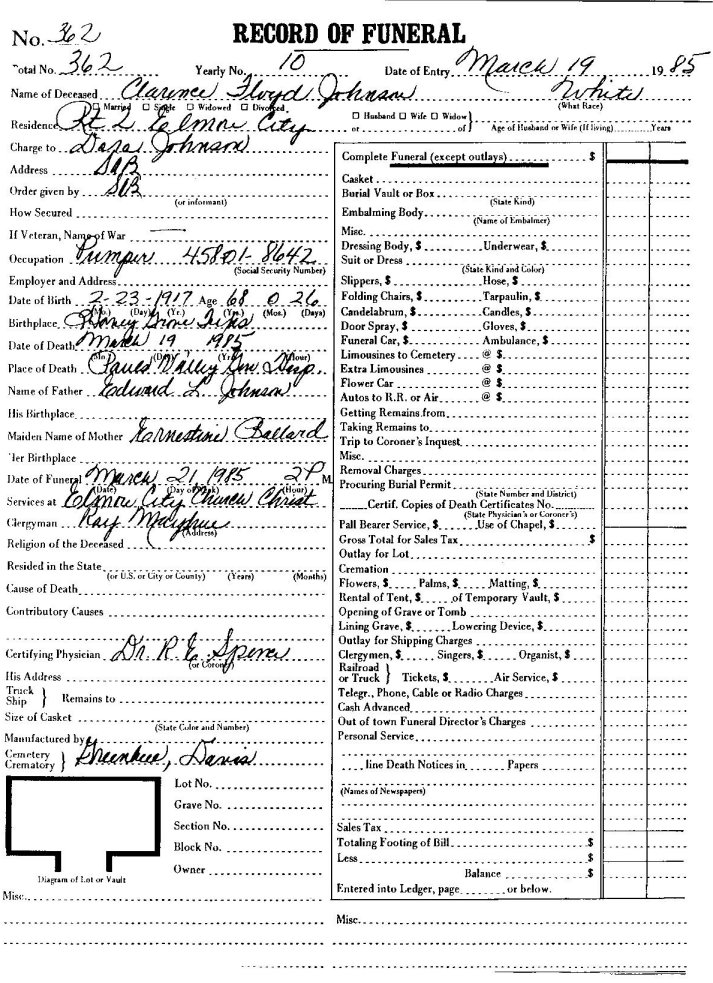 No. 362
RECORD OF FUNERAL
Total No. 362 Yearly No. 10 Date of Entry March 19 1985
Name of Deceased Clarence Floyd Johnson White
☐ Married ☐ Single ☐ Widowed ☐ Divorced (What Race)
Residence Rt 2 Elmore City
☐ Husband ☐ Wife ☐ Widow } or of Age of Husband or Wife (If living) Years
Charge to Johnson
Address
Order given by
(or informant)
How Secured
If Veteran, Name of War
Occupation Pumper 458-01-8642
(Social Security Number)
Employer and Address
Date of Birth 2-23-1917 Age 68 0 26
(Mo.) (Day) (Yr.) (Yrs.) (Mos.) (Days)
Birthplace Honey Grove Texas
Date of Death March 19 1985
(Mo.) (Day) (Yr.) (Hour)
Place of Death Pauls Valley Gen Hosp.
Name of Father Edward L. Johnson
His Birthplace
Maiden Name of Mother Earnestine Ballard
Her Birthplace
Date of Funeral March 21 1985 2 P M
(Date) (Day of Week) (Hour)
Services at Elmore City Church Christ
Clergyman Ray
(Address)
Religion of the Deceased
Resided in the State
(or U.S. or City or County) (Years) (Months)
Cause of Death
Contributory Causes
Certifying Physician Dr. R. E. Spence
(or Coroner)
His Address
Truck Ship } Remains to
Size of Casket
(State Color and Number)
Manufactured by
Cemetery Crematory } Davis
Lot No.
Grave No.
Section No.
Block No.
Owner
Diagram of Lot or Vault
Misc.
Complete Funeral (except outlays) $
Casket
Burial Vault or Box
(State Kind)
Embalming Body
(Name of Embalmer)
Misc.
Dressing Body, $ Underwear, $
Suit or Dress
(State Kind and Color)
Slippers, $ Hose, $
Folding Chairs, $ Tarpaulin, $
Candelabrum, $ Candles, $
Door Spray, $ Gloves, $
Funeral Car, $ Ambulance, $
Limousines to Cemetery @ $
Extra Limousines @ $
Flower Car @ $
Autos to R.R. or Air @ $
Getting Remains from
Taking Remains to
Trip to Coroner's Inquest
Misc.
Removal Charges
Procuring Burial Permit
(State Number and District)
Certif. Copies of Death Certificates No.
(State Physician's or Coroner's)
Pall Bearer Service, $ Use of Chapel, $
Gross Total for Sales Tax $
Outlay for Lot
Cremation
Flowers, $ Palms, $ Matting, $
Rental of Tent, $ of Temporary Vault, $
Opening of Grave or Tomb
Lining Grave, $ Lowering Device, $
Outlay for Shipping Charges
Clergymen, $ Singers, $ Organist, $
Railroad or Truck } Tickets, $ Air Service, $
Telegr., Phone, Cable or Radio Charges
Cash Advanced
Out of town Funeral Director's Charges
Personal Service
line Death Notices in Papers
(Names of Newspapers)
Sales Tax
Totaling Footing of Bill $
Less $
Balance $
Entered into Ledger, page or below.
Misc.